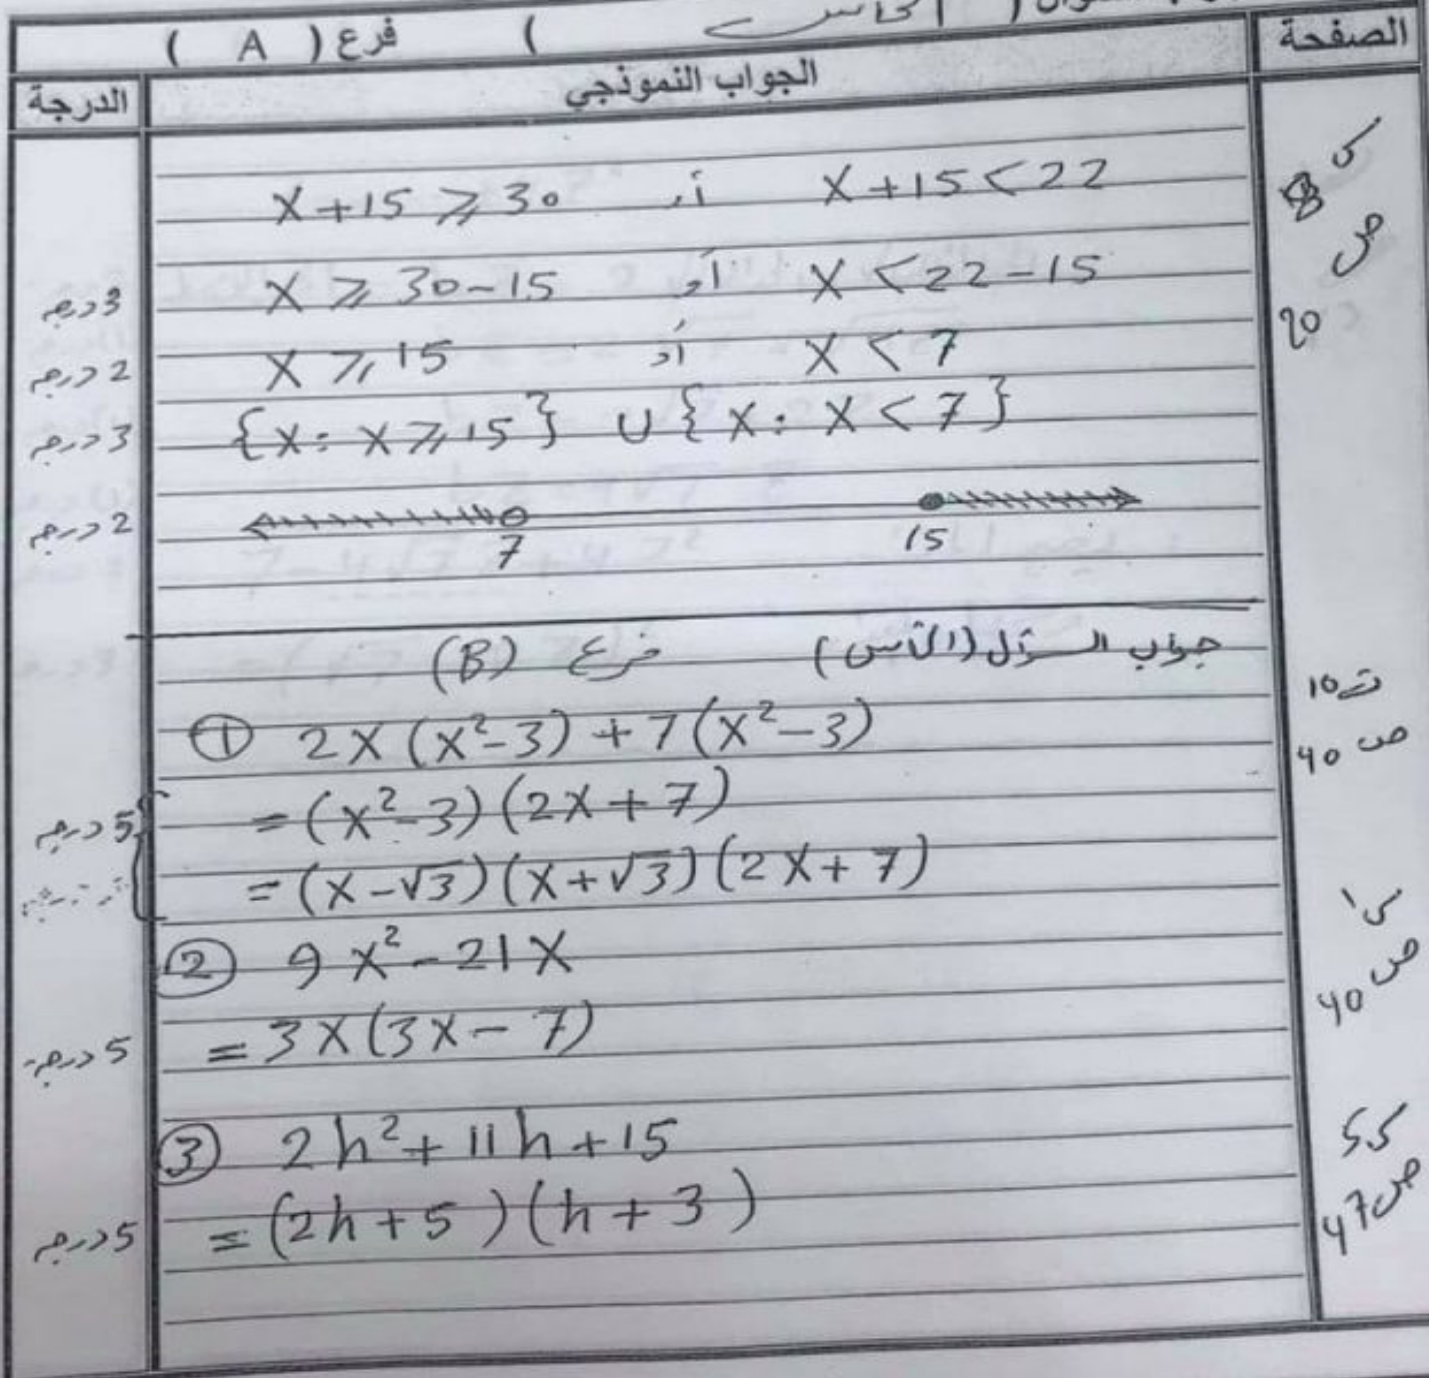 ( الخامس ) فرع ( A )
الصفحة
الجواب النموذجي
الدرجة
X+15 ⩾ 30 أو X+15 < 22
X ⩾ 30-15 أو X < 22-15
3 درجة
X ⩾ 15 أو X < 7
2 درجة
20
{X: X ⩾ 15} ∪ {X: X < 7}
3 درجة
2 درجة
7 15
جواب السؤال (الخامس) فرع (B)
ت 10
ص 40
① 2X(X²-3)+7(X²-3)
=(X²-3)(2X+7)
5 درجة
=(X-√3)(X+√3)(2X+7)
② 9X²-21X
ص 40
=3X(3X-7)
5 درجة
③ 2h²+11h+15
ص 47
=(2h+5)(h+3)
5 درجة